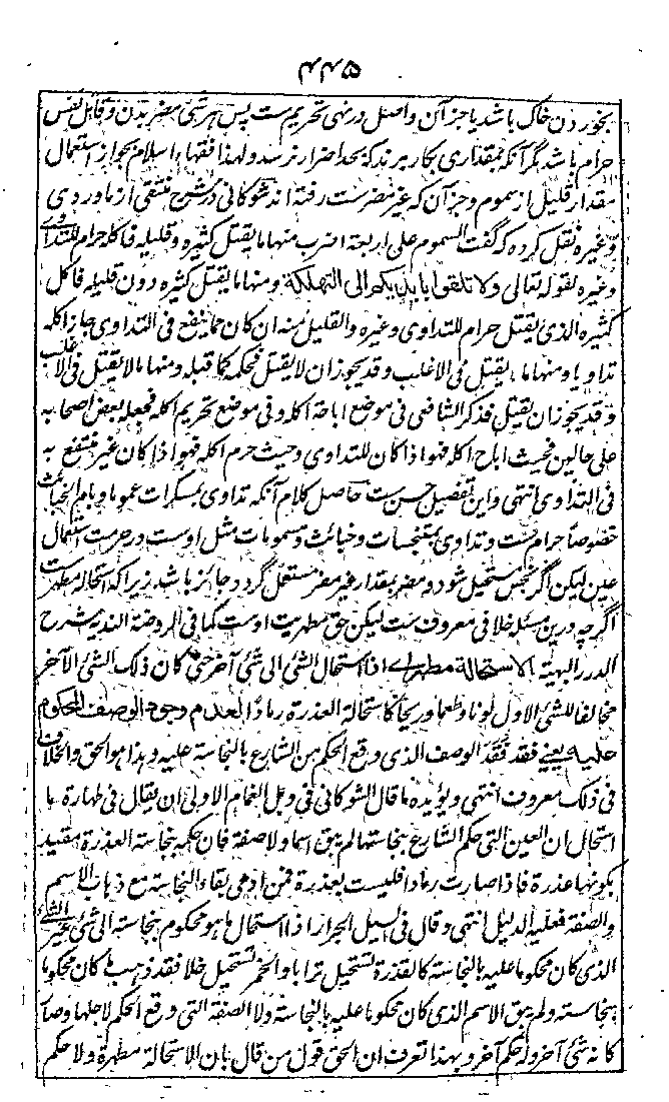 ۴۴۵
بخوردن خاک باشد یا جز آن واصل در نهی تحریم ست پس هر شی مضر بدن و قاتل نفس
حرام باشد مگر آنکه بمقداری بکار برند که بحد اضرار نرسد ولهذا فقهاء اسلام بجواز استعمال
مقدار قلیل از سموم و جز آن که غیر مضرست رفته اند شوکانی در شرح منتقی از ماوردی
وغیره نقل کرده که گفت السموم علی اربعة اضرب منها ما یقتل کثیره وقلیله فاکله حرام للتداوی
وغیره لقوله تعالی ولا تلقوا بایدیکم الی التهلکة ومنها ما یقتل کثیره دون قلیله فاکل
کثیره الذی یقتل حرام للتداوی وغیره والقلیل منه ان کان مما ینفع فی التداوی جاز اکله
تداویا ومنها ما یقتل فی الاغلب وقد یجوز ان لا یقتل فحکمه کما قبله ومنها ما لا یقتل فی الاغلب
وقد یجوز ان یقتل فذکر الشافعی فی موضع اباحة اکله وفی موضع تحریم اکله فجعله بعض اصحابه
علی حالین فحیث اباح اکله فهو اذا کان للتداوی وحیث حرم اکله فهو اذا کان غیر منتفع به
فی التداوی انتهی واین تفصیل حسن ست حاصل کلام آنکه تداوی بمسکرات عموما وبام الخبائث
خصوصا حرام ست وتداوی بمتنجسات وخبائث وسمومات مثل اوست در حرمت استعمال
عین لیکن اگر نجس مستحیل شود و مضر بمقدار غیر مضر مستعمل گردد جائز باشد زیراکه استحاله مطهرست
اگرچه درین مسئله خلافی معروف ست لیکن حق مطهریت اوست کما فی الروضة الندیه شرح
الدرر البهیة الاستحالة مطهرة اے اذا استحال الشئ الی شئ آخر حتی کان ذلک الشئ الآخر
مخالفا للشئ الاول لونا وطعما وریحا کاستحالة العذرة رمادا لعدم وجود الوصف المحکوم
علیه یعنے فقد فقد الوصف الذی وقع الحکم من الشارع بالنجاسة علیه وهذا هو الحق والخلاف
فی ذلک معروف انتهی ویؤیده ما قال الشوکانی فی وبل الغمام الاولی ان یقال فی طهارة ما
استحال ان العین التی حکم الشارع بنجاستها لم یبق اسما ولا صفة فان حکمه بنجاسة العذرة مقید
بکونها عذرة فاذا صارت رمادا فلیست بعذرة فمن ادعی بقاء النجاسة مع ذهاب الاسم
والصفة فعلیه الدلیل انتهی وقال فی السیل الجرار اذا استحال ما هو محکوم بنجاسته الی شئ غیر الشئ
الذی کان محکوما علیه بالنجاسة کالعذرة تستحیل ترابا والخمر تستحیل خلا فقد ذهب ما کان محکوما
بنجاسته ولم یبق الاسم الذی کان محکوما علیه بالنجاسة ولا الصفة التی وقع الحکم لاجلها وصار
کانه شئ آخر وله حکم آخر وبهذا تعرف ان الحق قول من قال بان الاستحالة مطهرة ولا حکم